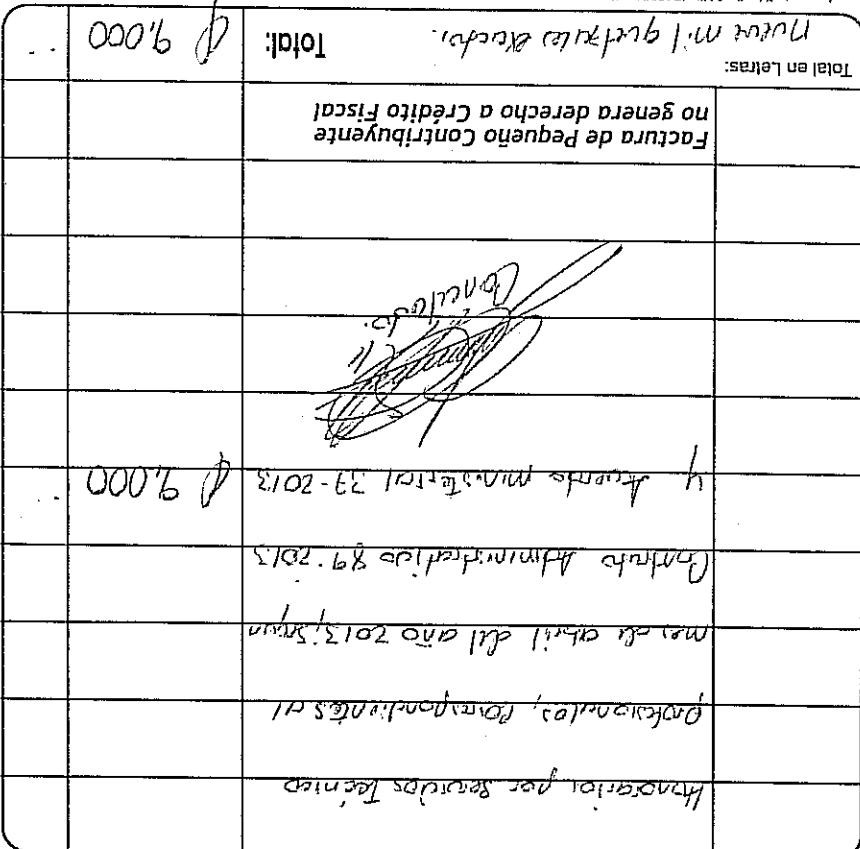 Honorarios por Servicios Técnico
profesionales, correspondientes al
mes de abril del año 2013, Según
Contrato Administrativo 89-2013
y Acuerdo ministerial 37-2013 Q 9,000
Cancelado.
Factura de Pequeño Contribuyente
no genera derecho a Crédito Fiscal
Total en Letras:
Nueve mil quetzales exactos. Total: Q 9,000